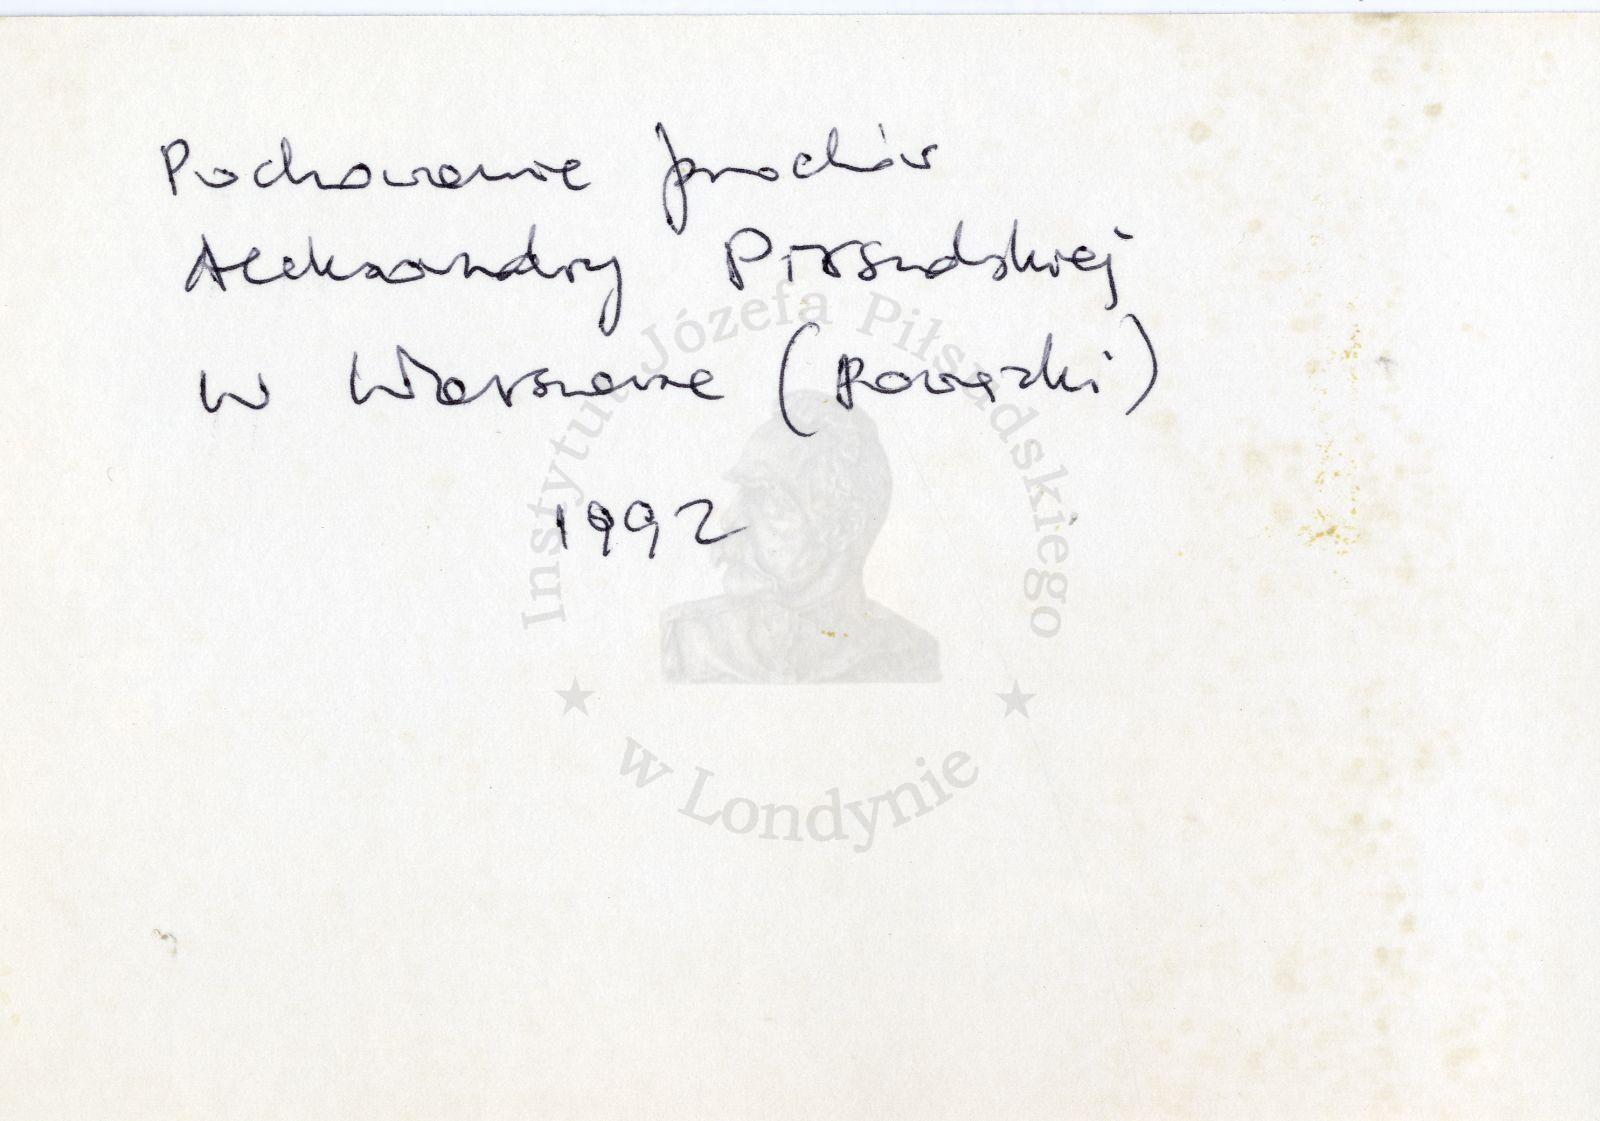 Pochowanie prochów
Aleksandry Piłsudskiej
w Warszawie (Powązki)
1992
Instytut Józefa Piłsudskiego
w Londynie